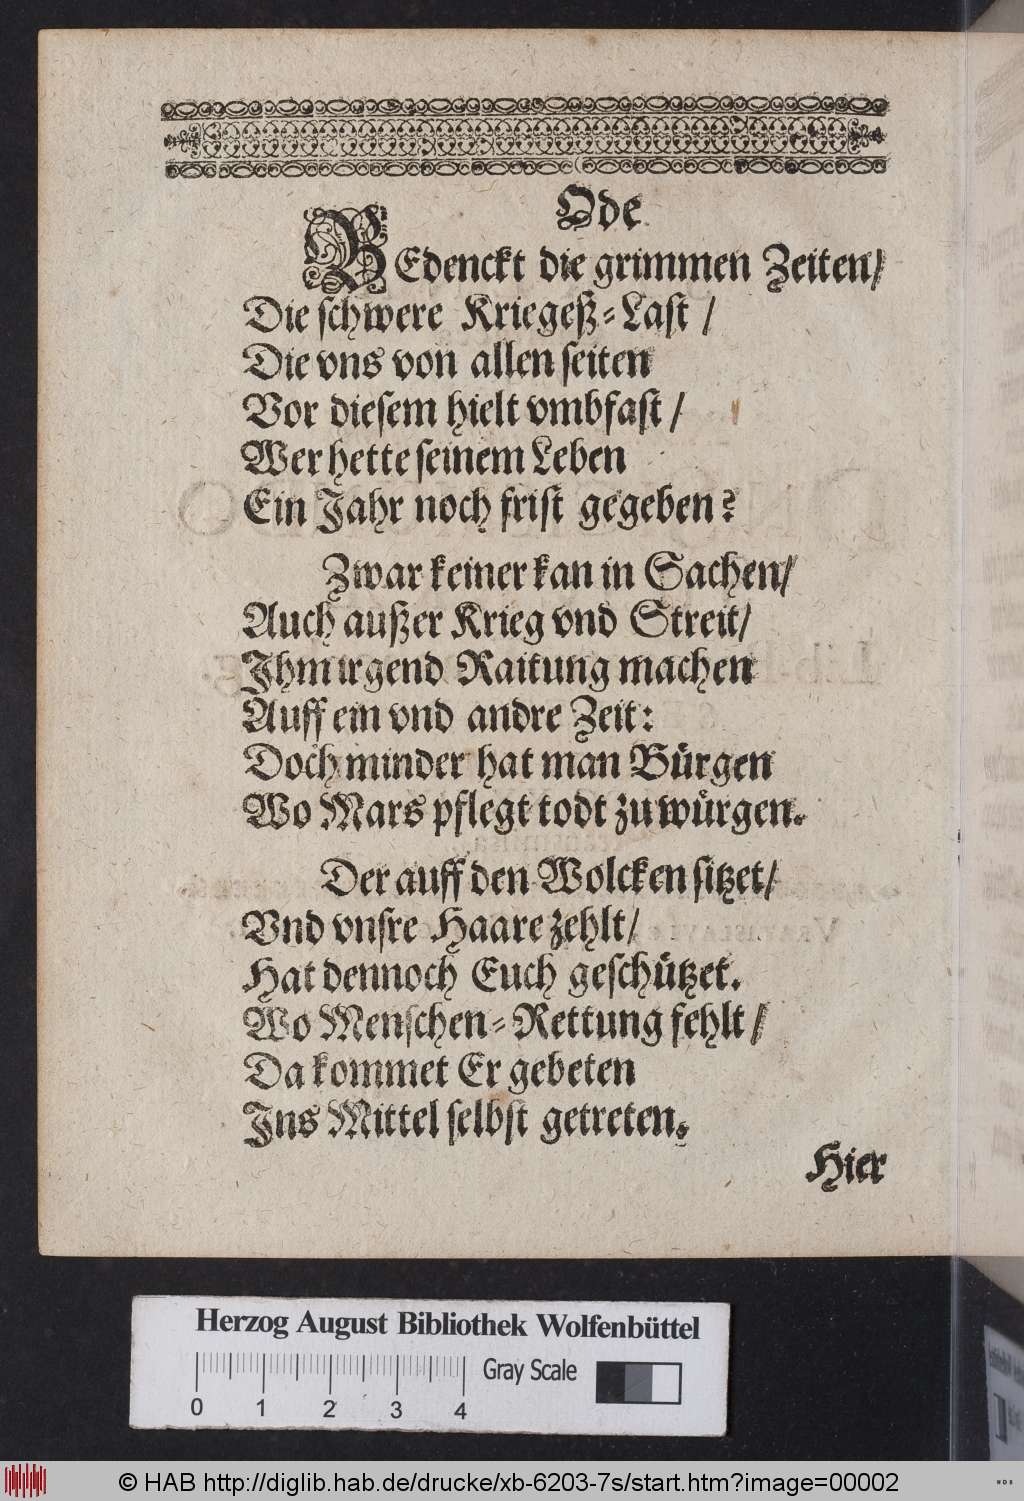 Ode
BEdenckt die grimmen Zeiten/
Die schwere Kriegeß-Last /
Die vns von allen seiten
Vor diesem hielt vmbfast /
Wer hette seinem Leben
Ein Jahr noch frist gegeben?
Zwar keiner kan in Sachen/
Auch außer Krieg vnd Streit/
Ihm irgend Raitung machen
Auff ein vnd andre Zeit:
Doch minder hat man Bürgen
Wo Mars pflegt todt zu würgen.
Der auff den Wolcken sitzet/
Vnd vnsre Haare zehlt/
Hat dennoch Euch geschützet.
Wo Menschen-Rettung fehlt/
Da kommet Er gebeten
Ins Mittel selbst getreten.
Hier
Herzog August Bibliothek Wolfenbüttel
Gray Scale
0 1 2 3 4
© HAB http://diglib.hab.de/drucke/xb-6203-7s/start.htm?image=00002